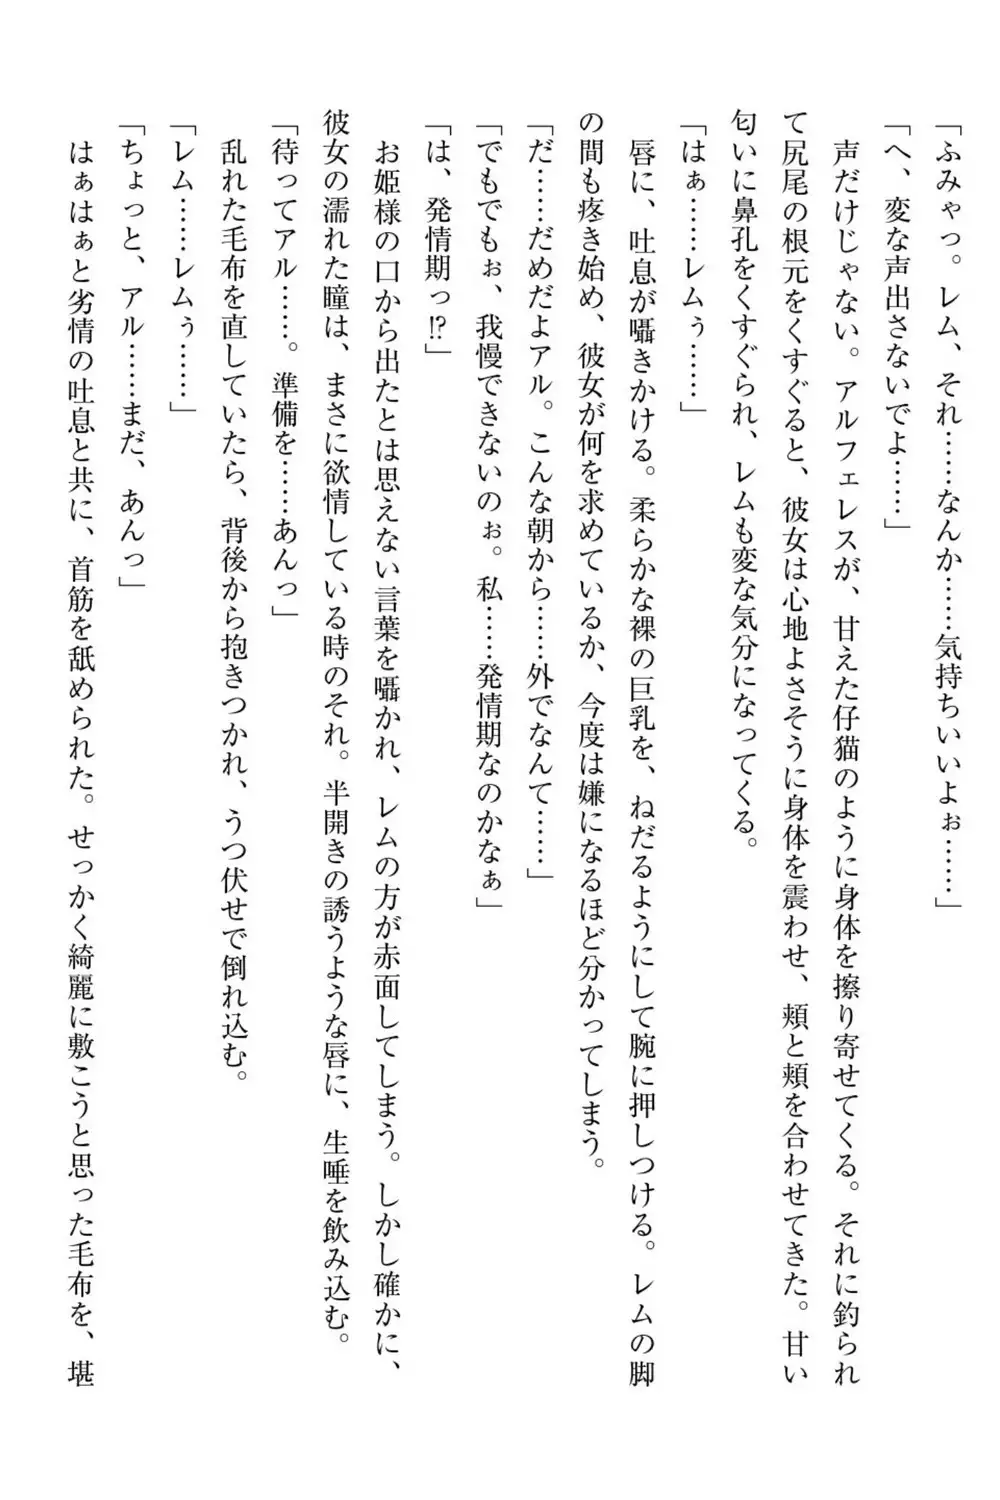 「ふみゃっ。レム、それ……なんか……気持ちいいよぉ……」
「へ、変な声出さないでよ……」
　声だけじゃない。アルフェレスが、甘えた仔猫のように身体を擦り寄せてくる。それに釣られ
て尻尾の根元をくすぐると、彼女は心地よさそうに身体を震わせ、頬と頬を合わせてきた。甘い
匂いに鼻孔をくすぐられ、レムも変な気分になってくる。
「はぁ……レムぅ……」
　唇に、吐息が囁きかける。柔らかな裸の巨乳を、ねだるようにして腕に押しつける。レムの脚
の間も疼き始め、彼女が何を求めているか、今度は嫌になるほど分かってしまう。
「だ……だめだよアル。こんな朝から……外でなんて……」
「でもでもぉ、我慢できないのぉ。私……発情期なのかなぁ」
「は、発情期っ⁉」
　お姫様の口から出たとは思えない言葉を囁かれ、レムの方が赤面してしまう。しかし確かに、
彼女の濡れた瞳は、まさに欲情している時のそれ。半開きの誘うような唇に、生唾を飲み込む。
「待ってアル……。準備を……あんっ」
　乱れた毛布を直していたら、背後から抱きつかれ、うつ伏せで倒れ込む。
「レム……レムぅ……」
「ちょっと、アル……まだ、あんっ」
　はぁはぁと劣情の吐息と共に、首筋を舐められた。せっかく綺麗に敷こうと思った毛布を、堪